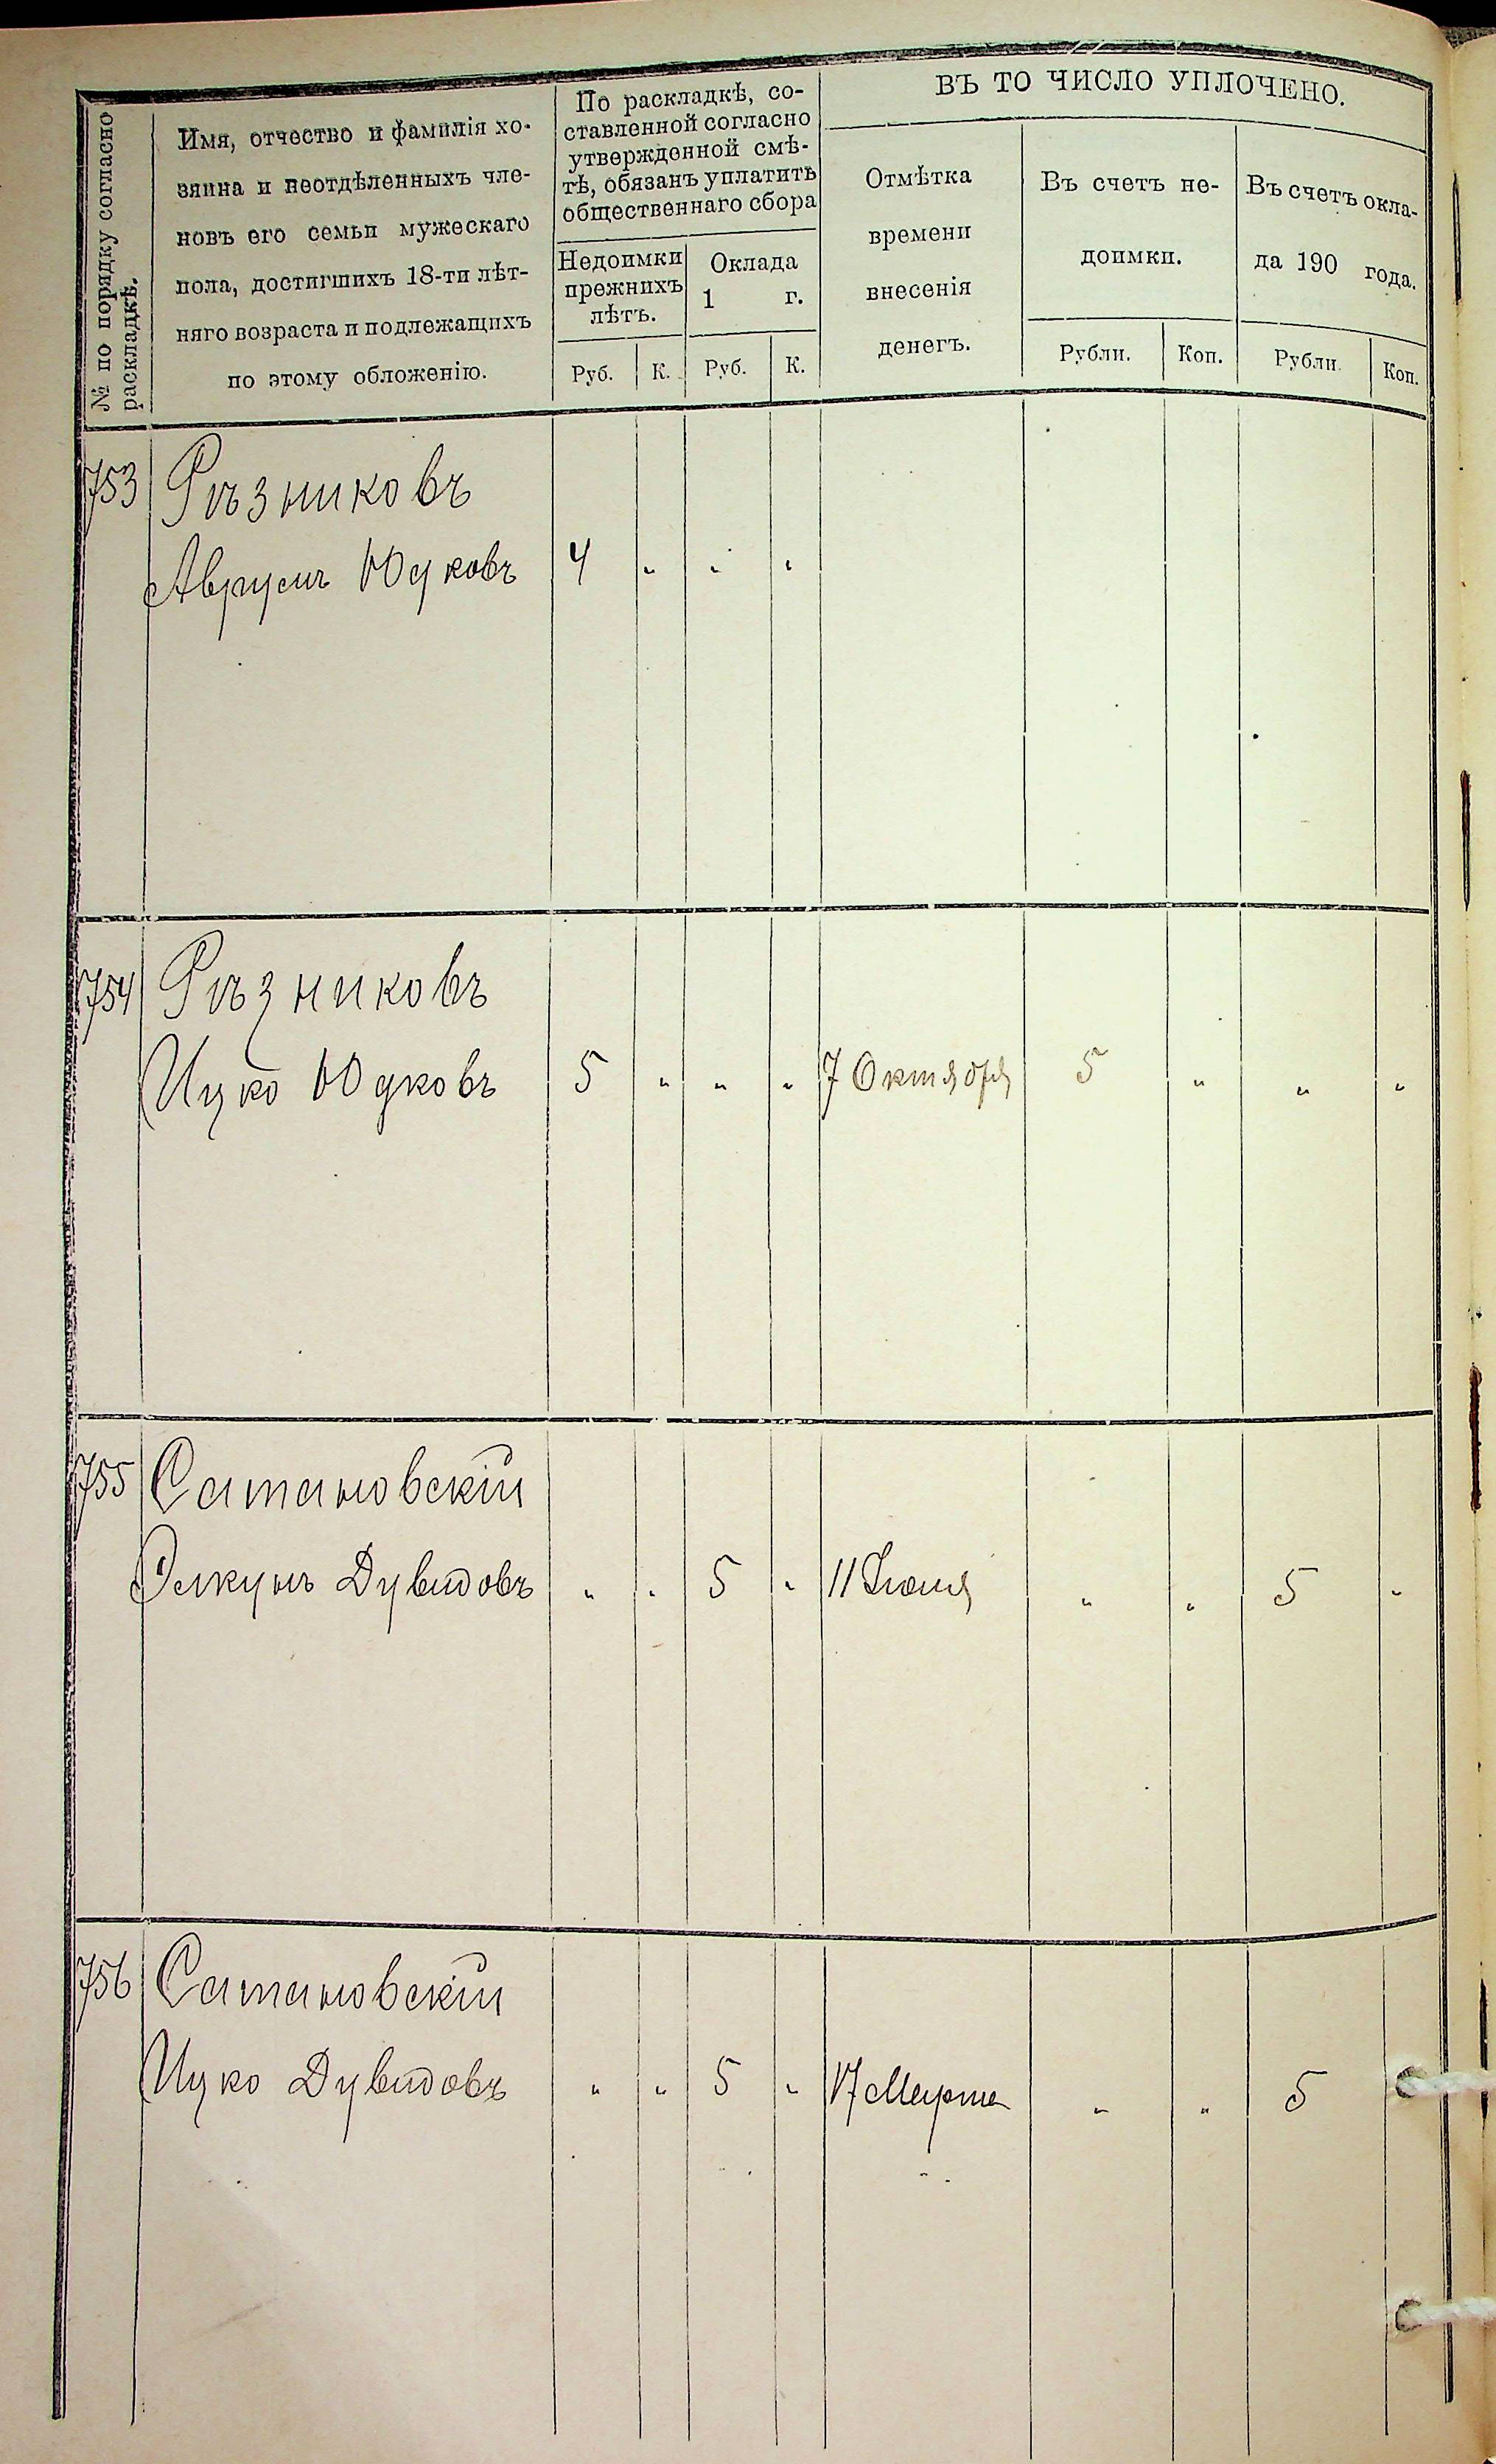 № по порядку согласно
раскладкѣ.
Имя, отчество и фамилія хо-
зяина и неотдѣленныхъ чле-
новъ его семьи мужескаго
пола, достигшихъ 18-ти лѣт-
няго возраста и подлежащихъ
по этому обложенію.
По раскладкѣ, со-
ставленной согласно
утвержденной смѣ-
тѣ, обязанъ уплатить
общественнаго сбора
Недоимки
прежнихъ
лѣтъ.
Оклада
1 г.
Руб. К. Руб. К.
ВЪ ТО ЧИСЛО УПЛОЧЕНО.
Отмѣтка
времени
внесенія
денегъ.
Въ счетъ не-
доимки.
Рубли. Коп.
Въ счетъ окла-
да 190 года.
Рубли. Коп.
753 Рѣзниковъ
Аврумъ Юдковъ 4 " " "
754 Рѣзниковъ
Ицко Юдковъ 5 " " " 7 Октября 5 " " "
755 Сатановскій
Элкунъ Дувидовъ " " 5 " 11 " " 5 "
756 Сатановскій
Ицко Дувидовъ " " 5 " 17 Марта " " 5